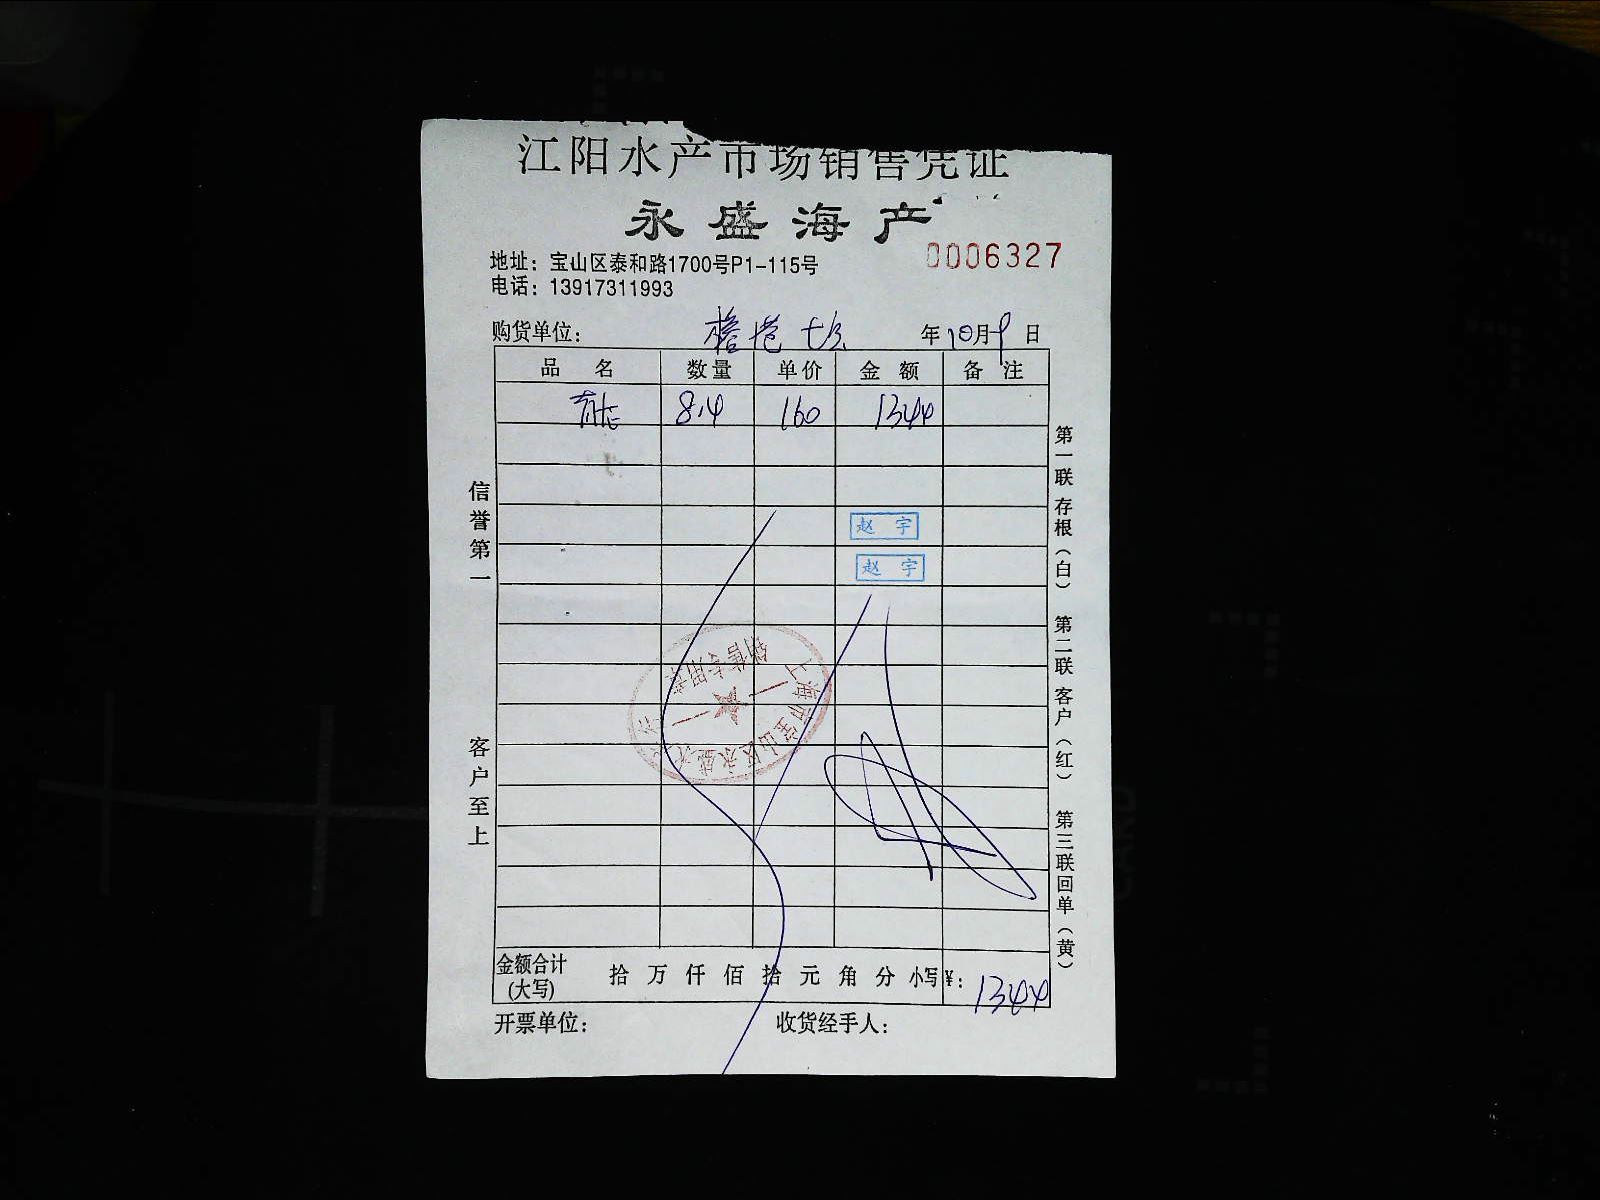 江阳水产市场销售凭证
永盛海产
0006327
地址：宝山区泰和路1700号P1-115号
电话：13917311993
购货单位： 年10月9日
品名 数量 单价 金额 备注
8.4 160 1344
赵宇
赵宇
上海市宝山区永盛水
销售专用章
金额合计(大写) 拾万仟佰拾元角分 小写¥：1344
开票单位： 收货经手人：
信誉第一
客户至上
第一联 存根（白） 第二联 客户（红） 第三联 回单（黄）